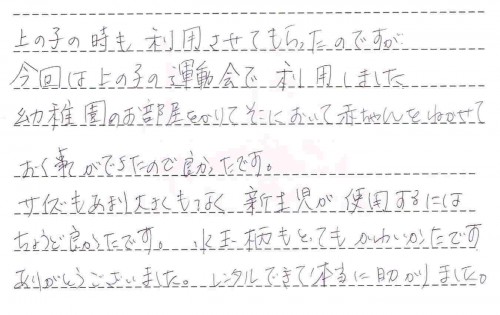 上の子の時も利用させてもらったのですが
今回は上の子の運動会で利用しました
幼稚園のお部屋をかりてそこにおいて赤ちゃんをねかせて
おく事ができたので良かったです。
サイズもあまり大きくもなく新生児が使用するには
ちょうど良かったです。水玉柄もとってもかわいかったです
ありがとうございました。レンタルできて本当に助かりました。